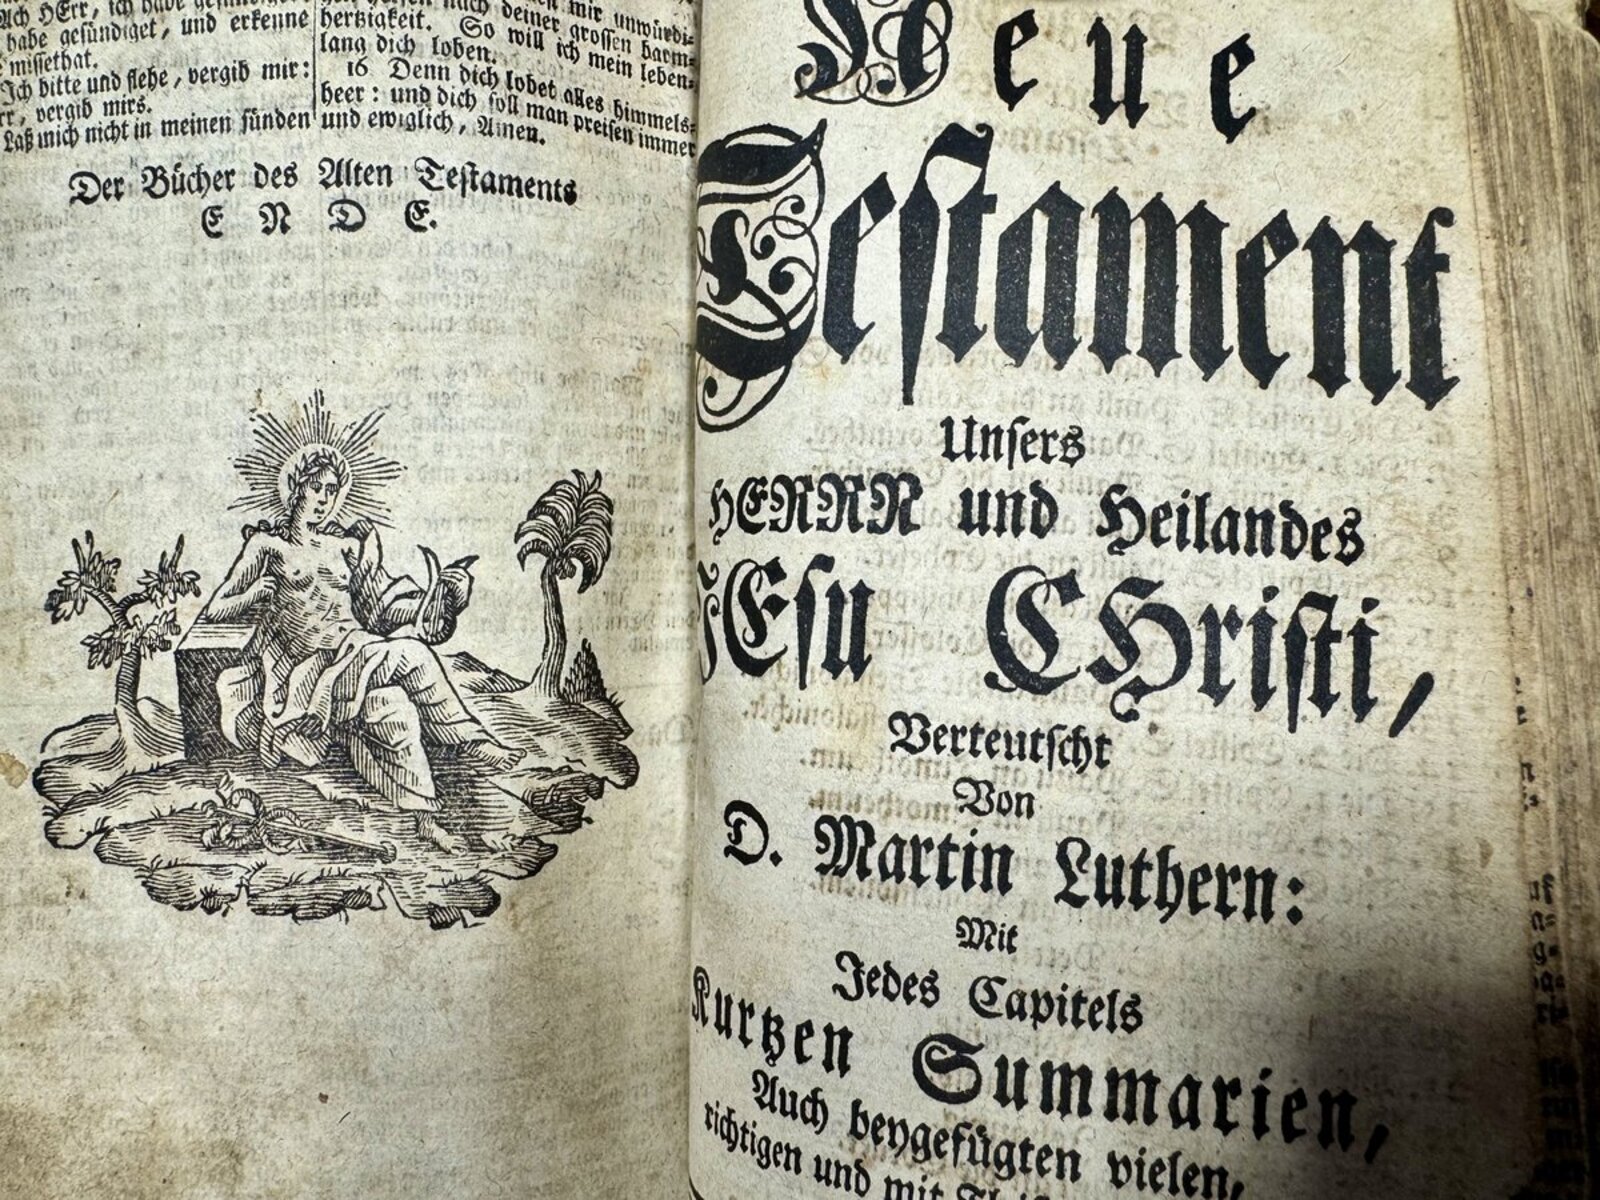 Ach HErr, ich habe gesündiget
habe gesündiget, und erkenne
missethat.
Ich bitte und flehe, vergib mir:
vergib mirs.
Laß mich nicht in meinen sünden
mir unwürdi-
nach deiner grossen barm-
hertzigkeit. So will ich mein leben-
lang dich loben.
16 Denn dich lobet alles himmels-
heer: und dich soll man preisen immer
und ewiglich, Amen.
Der Bücher des Alten Testaments
E N D E.
Neue
Testament
Unsers
HERRN und Heilandes
JEsu CHristi,
Verteutscht
Von
D. Martin Luthern:
Mit
Jedes Capitels
Kurtzen Summarien,
Auch beygefügten vielen,
richtigen und mit